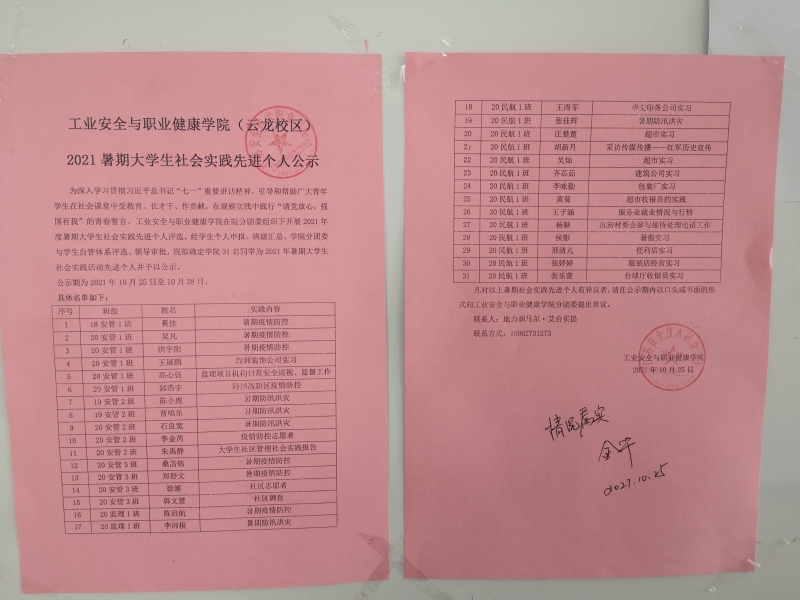 工业安全与职业健康学院（云龙校区）
2021暑期大学生社会实践先进个人公示
为深入学习贯彻习近平总书记“七一”重要讲话精神，引导和帮助广大青年
学生在社会课堂中受教育、长才干、作贡献，在观察实践中践行“请党放心，强
国有我”的青春誓言，工业安全与职业健康学院在院分团委组织下开展2021年
度暑期大学生社会实践先进个人评选，经学生个人申报、班级汇总、学院分团委
与学生自管体系评选、领导审批，现拟确定学院31名同学为2021年暑期大学生
社会实践活动先进个人并予以公示。
公示期为2021年10月25日至10月28日。
具体名单如下：
序号 班级 姓名 实践内容
1 18安管1班 奚佳 暑期疫情防控
2 20安管1班 吴凡 暑期疫情防控
3 20安管1班 洪宇阳 暑期疫情防控
4 20安管1班 王展鹏 装饰公司实习
5 20安管1班 高心钰 监理项目机构日常安全巡视、监督工作
6 20安管1班 郭浩宇 新区疫情防控
7 19安管2班 陈小虎 暑期防汛洪灾
8 19安管2班 曹唱乐 暑期防汛洪灾
9 20安管2班 石良宽 暑期防汛洪灾
10 20安管2班 李金芮 疫情防控志愿者
11 20安管2班 朱禹静 大学生社区管理社会实践报告
12 20安管3班 桑浩铭 暑期疫情防控
13 20安管3班 郑舒文 暑期疫情防控
14 20安管3班 徐娜 社区志愿者
15 20安管3班 韩文慧 社区调查
16 20监理1班 陈启航 暑期疫情防控
17 20监理1班 李沛根 暑期防汛洪灾
18 20民航1班 王雨菲 华文印务公司实习
19 20民航1班 张佳辉 暑期防汛洪灾
20 20民航1班 庄楚楚 超市实习
21 20民航1班 胡新月 采访传媒传播——红军历史宣传
22 20民航1班 吴灿 超市实习
23 20民航1班 齐芯茹 建筑公司实习
24 20民航1班 李咏勤 包装厂实习
25 20民航1班 黄菊 超市收银员的实践
26 20民航1班 王子涵 服务业就业情况与行情
27 20民航1班 杨颖 村委会参与接待处理电话工作
28 20民航1班 侯影 暑假实习
29 20民航1班 邢清儿 便利店实习
30 20民航1班 张婷婷 服装店经营实习
31 20民航1班 张乐萱 台球厅收银员实习
凡对以上暑期社会实践先进个人有异议者，请在公示期内以口头或书面的形
式向工业安全与职业健康学院分团委提出异议。
联系人：地力胡马尔·艾合买提
联系方式：19962731273
工业安全与职业健康学院
2021年10月25日
情况属实
2021.10.25